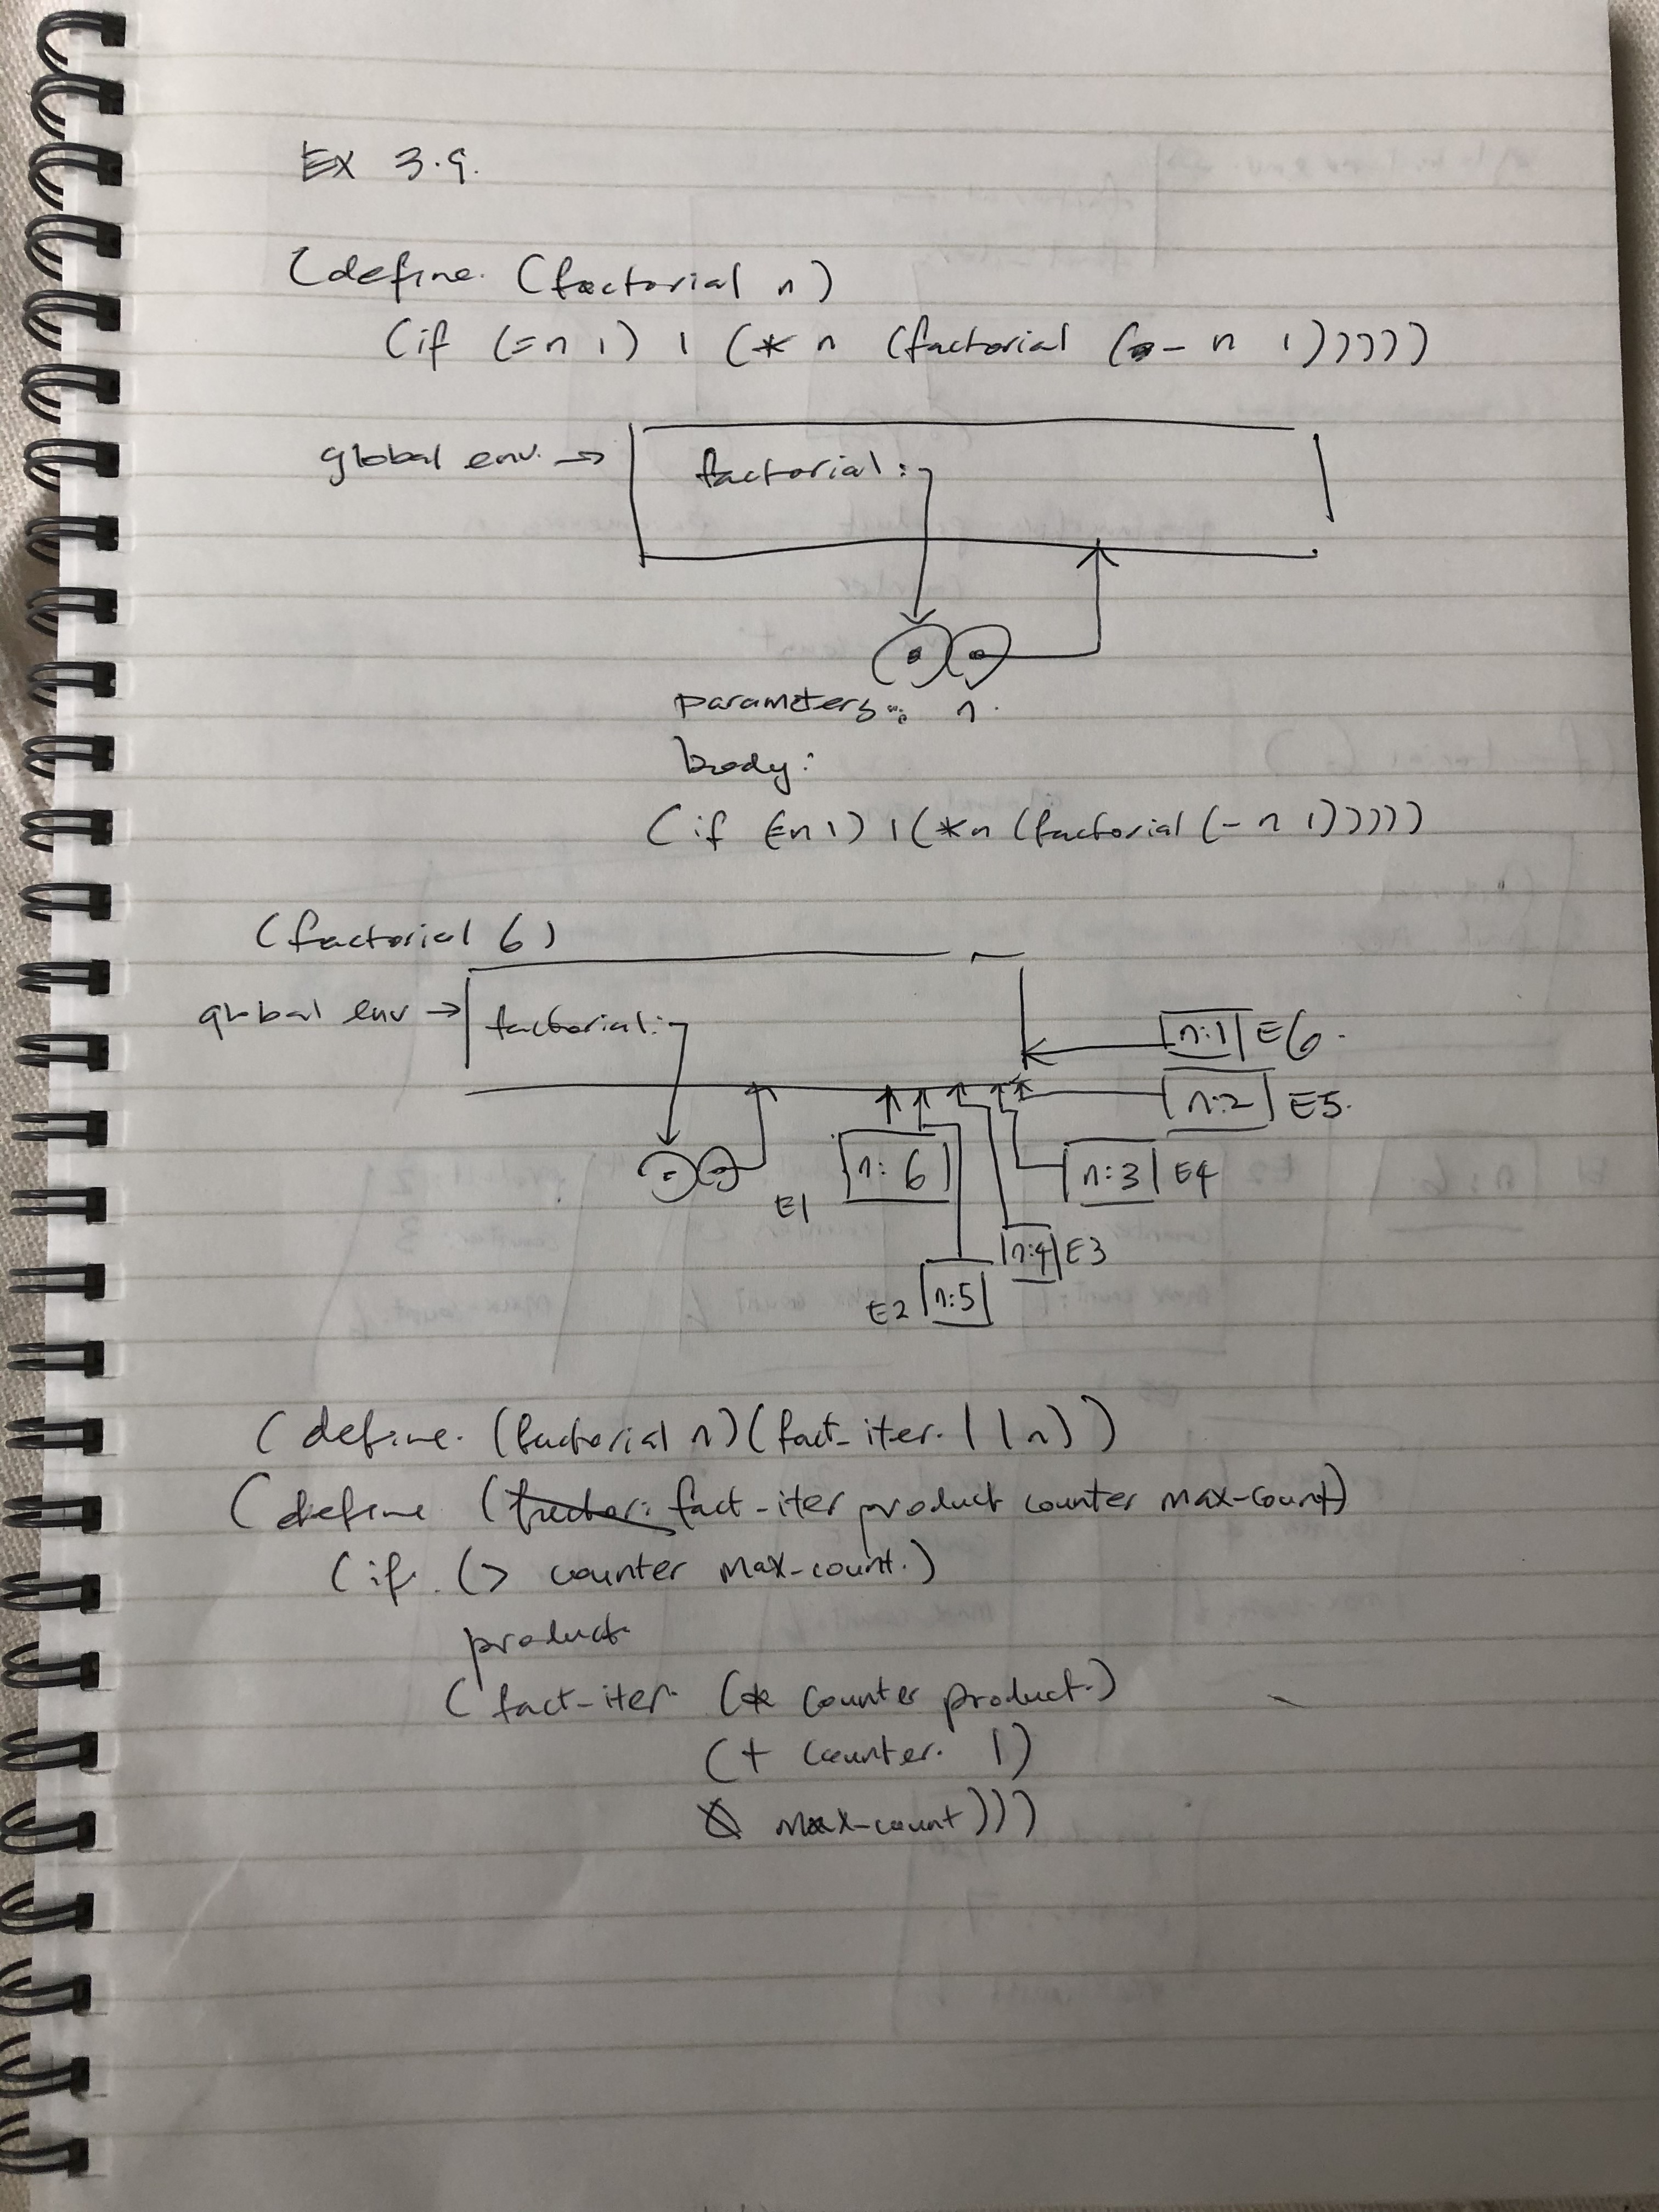 Ex 3.9.
(define (factorial n)
(if (= n 1) 1 (* n (factorial (- n 1)))))
global env. →
factorial:
parameters: n
body:
(if (= n 1) 1 (* n (factorial (- n 1)))))
(factorial 6)
global env →
factorial:
n:1 E6
n:2 E5
n:6
E1
n:3 E4
n:4 E3
E2 n:5
(define (factorial n) (fact-iter 1 1 n))
(define (fact-iter product counter max-count)
(if (> counter max-count)
product
(fact-iter (* counter product)
(+ counter 1)
max-count)))